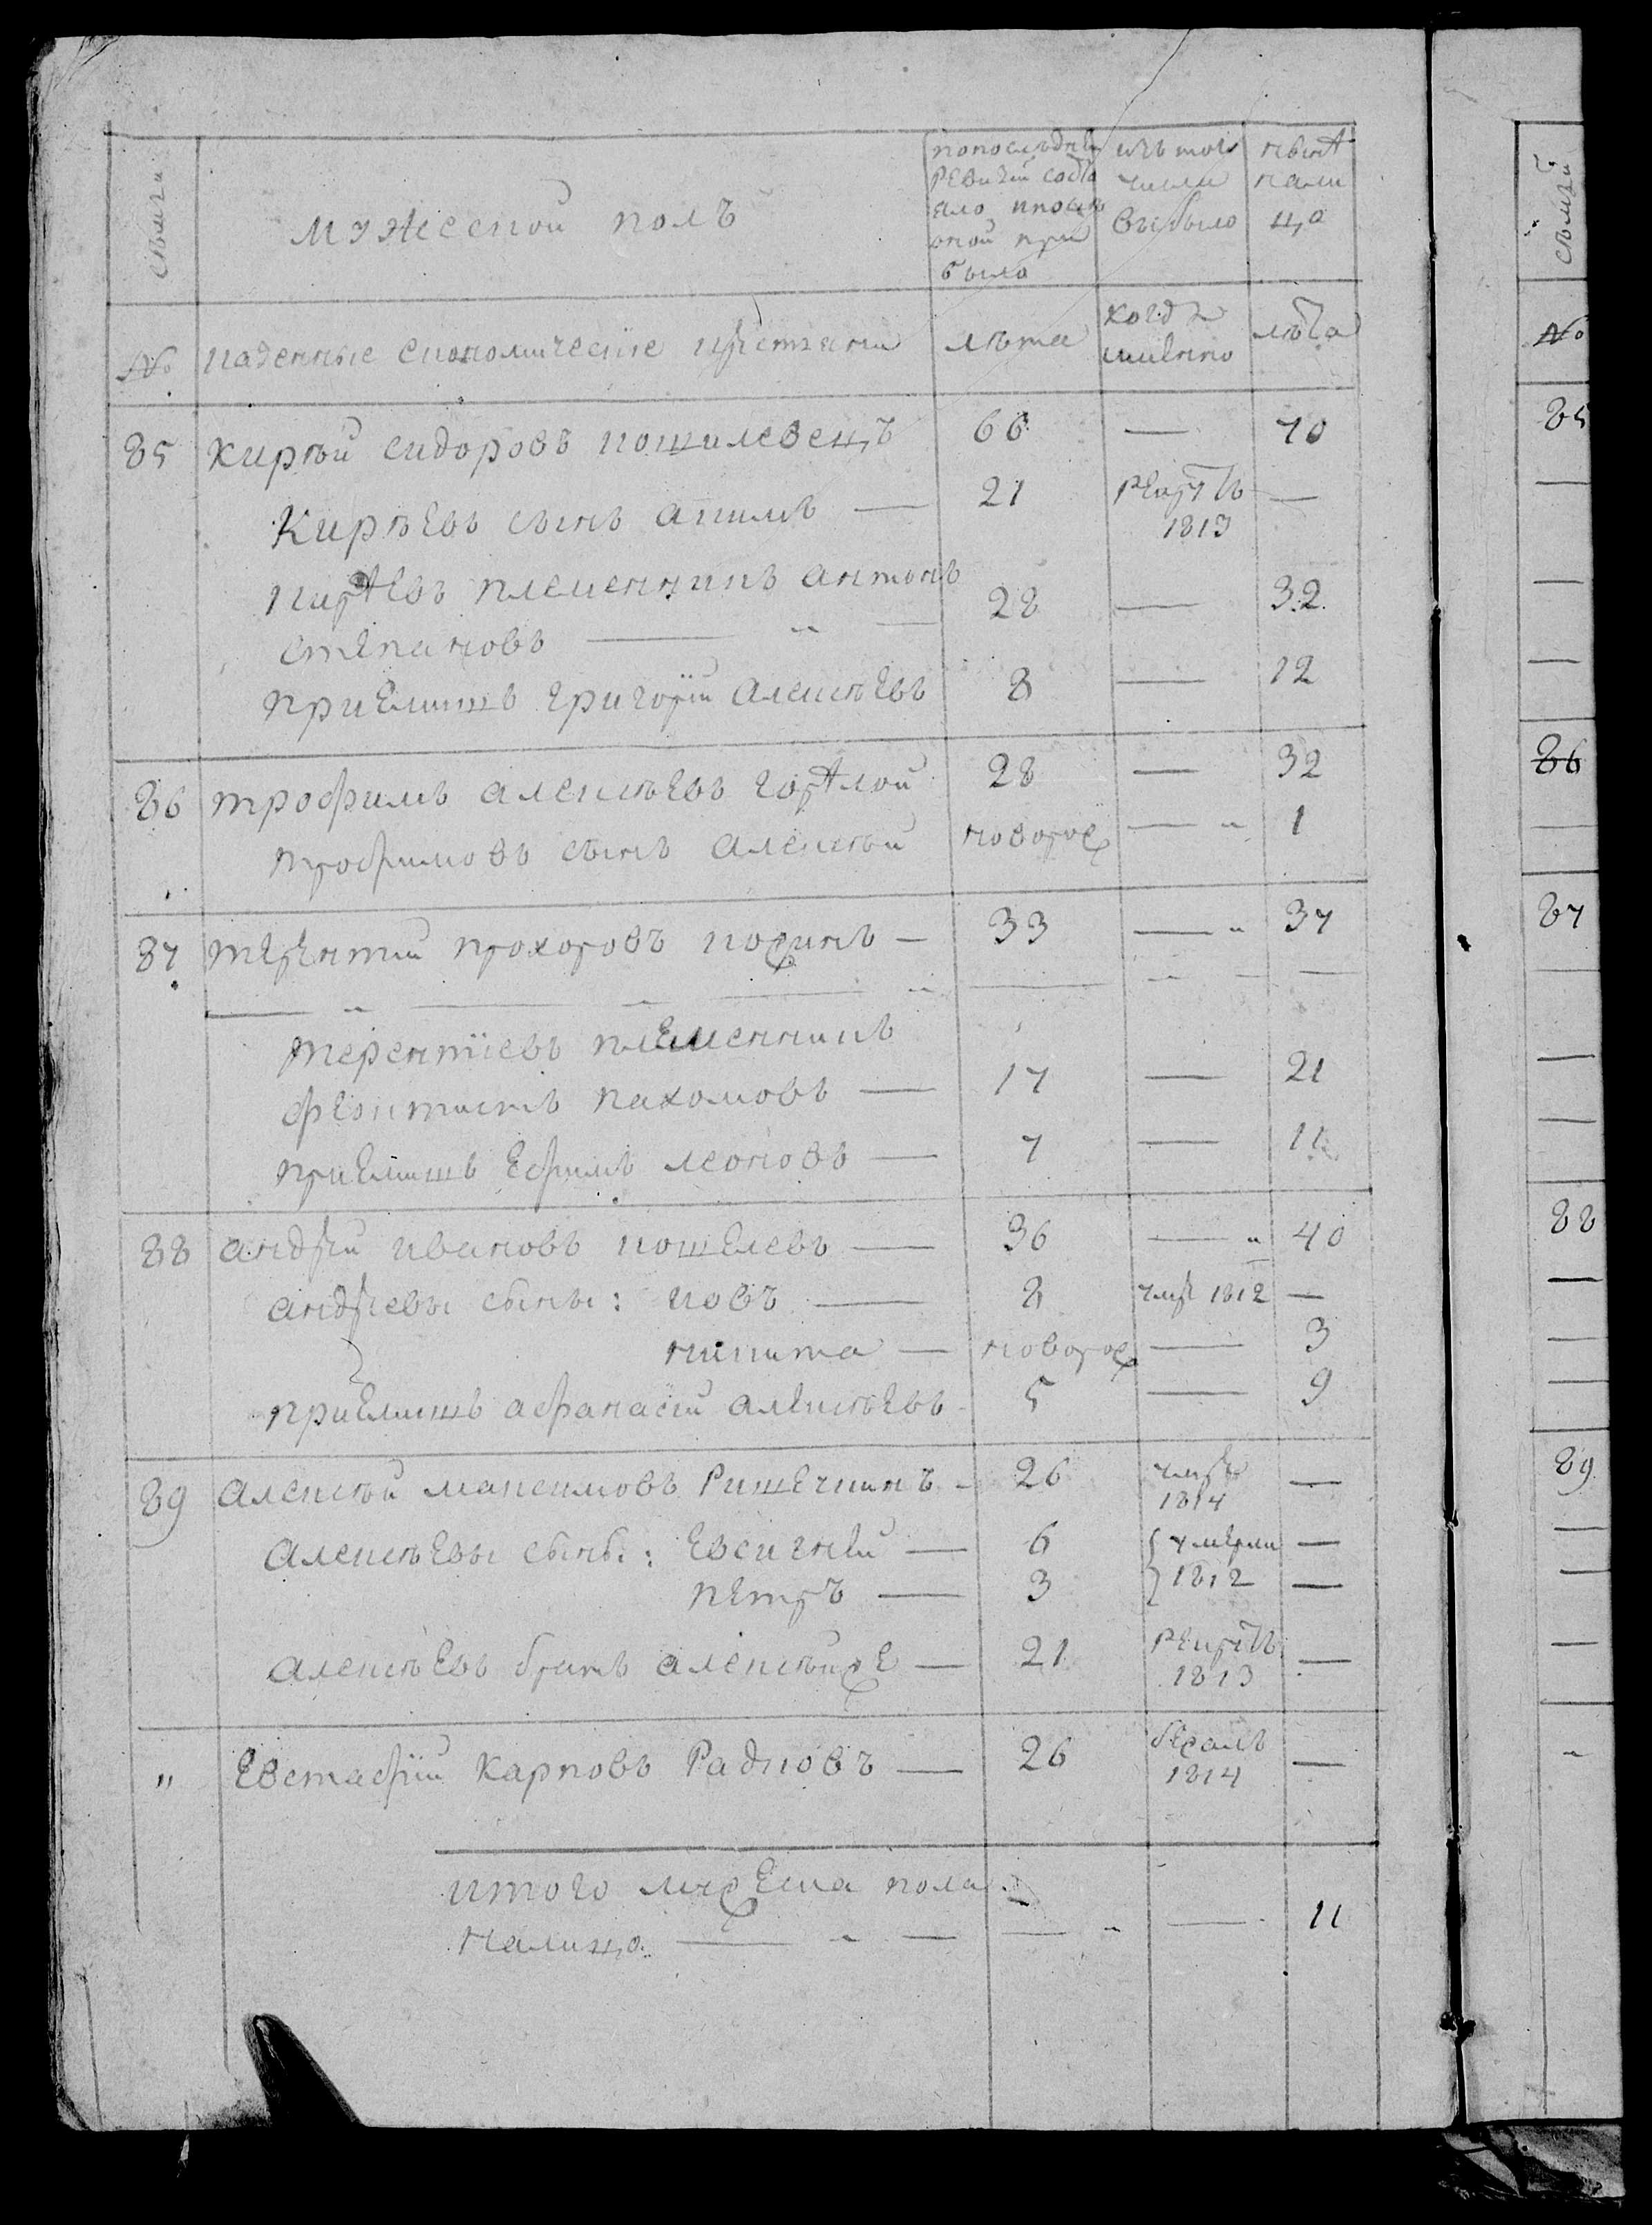 семьи
мужеской полъ
попоследней ревизии состояло ипосле оной прибыло
изъ того числа выбыло
ныне налицо
№ казенные економические крестьяни лета когда имянно лета
85 Кирѣй сидоровъ кошилевецъ 66 — 70
Кирѣевъ сынъ акимъ — 21 рекрутъ 1813 —
кирѣевъ племенникъ антонъ
степановъ — „ — 28 — 32
приемишъ григорїй алексѣевъ 8 — 12
86 трофимъ алексѣевъ горѣлой 28 — 32
трофимовъ сынъ алексѣй новорож — „ 1
87 терентий прохоровъ кожинъ — 33 — „ 37
— „ — „ — „ — „ — —
терентїевъ племенникъ
феоктистъ пахомовъ — 17 — 21
приемишъ ефимъ леоновъ — 7 — 11
88 андрей ивановъ кошелевъ — 36 — „ 40
андреевы сыны: иовъ — 8 умре 1812 —
никита — новорож — 3
приемишъ афанасїй алексѣевъ 5 — 9
89 Алексѣй максимовъ Ришечкинъ - 26 умре 1814 —
Алексѣевы сыны: Евсигней — 6 { умерли —
петръ — 3 } 1812 —
алексѣевъ братъ алексѣйже — 21 рекрутъ 1813 —
„ Евстафїй Карповъ Радковъ — 26 бежалъ 1814 —
итого мужеска пола
налицо — „ — — „ — 11
семьи
№
85
—
—
—
86
—
87
—
—
—
88
—
—
—
89
—
—
—
„